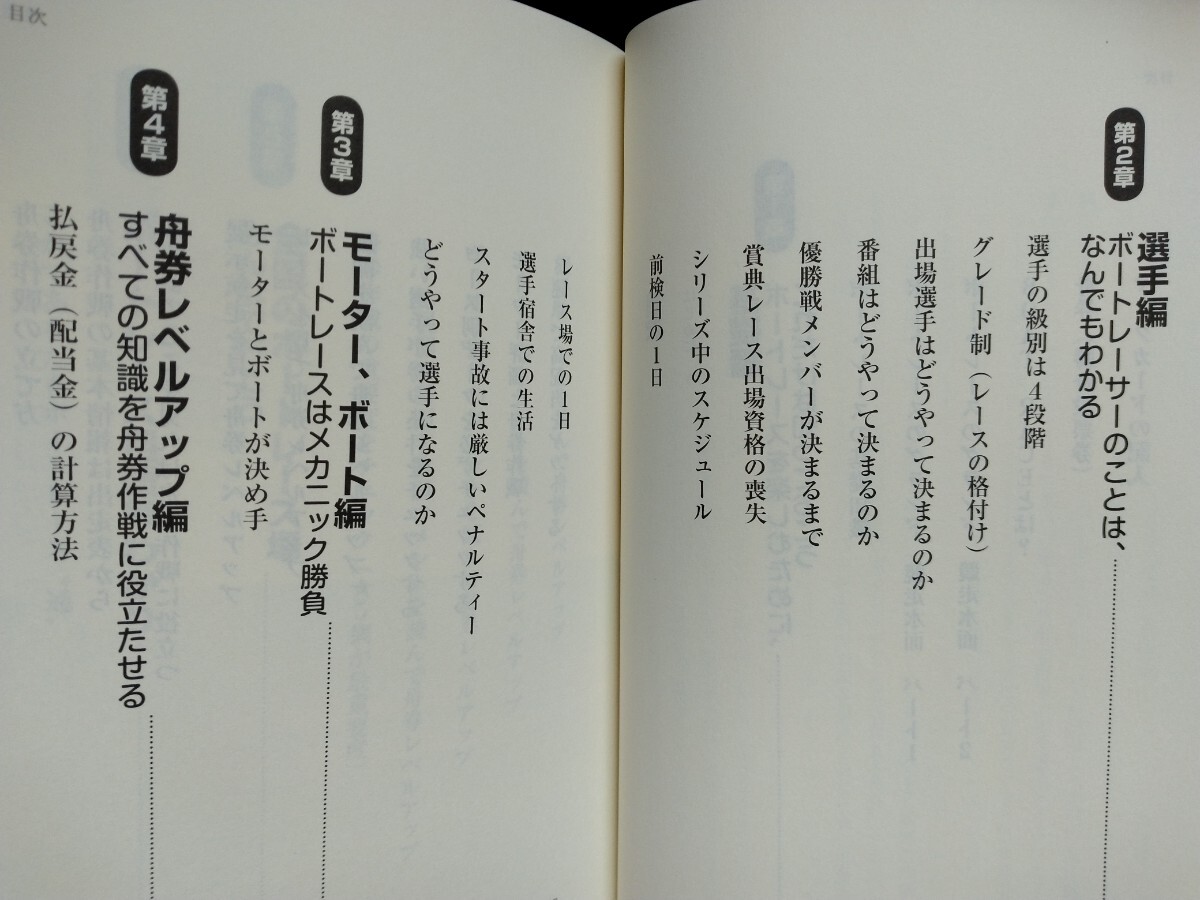 第2章
選手編
ボートレーサーのことは、
なんでもわかる
選手の級別は4段階
グレード制（レースの格付け）
出場選手はどうやって決まるのか
番組はどうやって決まるのか
優勝戦メンバーが決まるまで
賞典レース出場資格の喪失
シリーズ中のスケジュール
前検日の1日
レース場での1日
選手宿舎での生活
スタート事故には厳しいペナルティー
どうやって選手になるのか
第3章
モーター、ボート編
ボートレースはメカニック勝負
モーターとボートが決め手
第4章
舟券レベルアップ編
すべての知識を舟券作戦に役立たせる
払戻金（配当金）の計算方法
目次